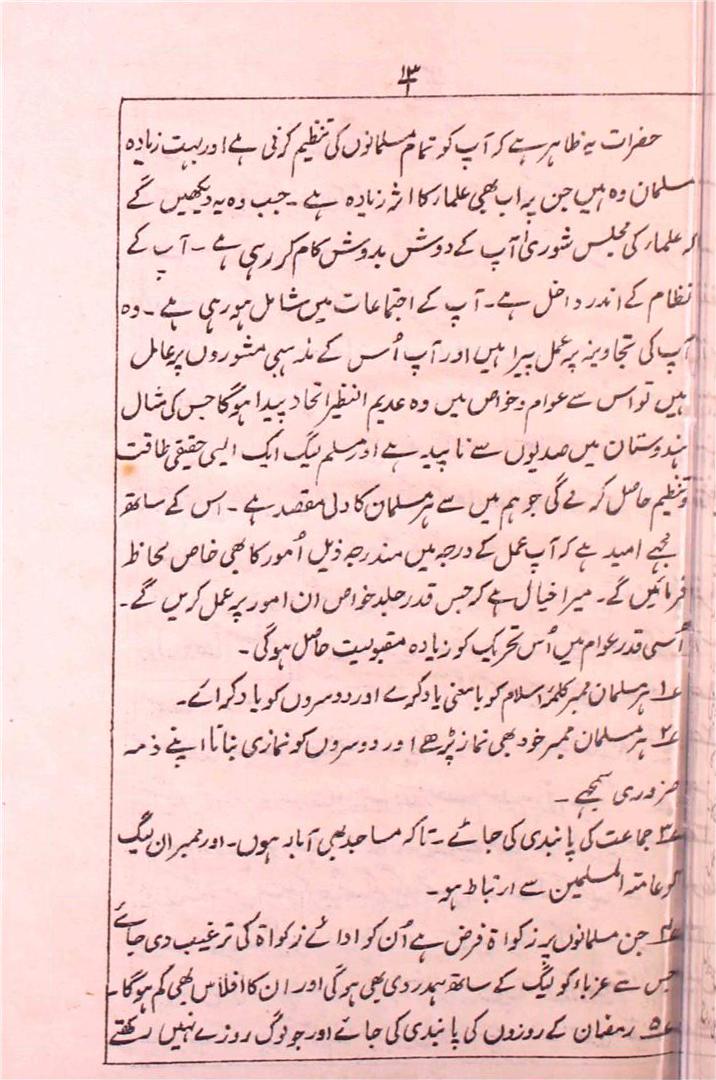 ۱۳
حضرات یہ ظاہر ہے کہ آپ کو تمام مسلمانوں کی تنظیم کرنی ہے اور بہت زیادہ
مسلمان وہ ہیں جن پر اب بھی علماء کا اثر زیادہ ہے ۔ جب وہ یہ دیکھیں گے
کہ علماء کی مجلس شوریٰ آپ کے دوش بدوش کام کر رہی ہے ۔ آپ کے
نظام کے اندر داخل ہے ۔ آپ کے اجتماعات میں شامل ہو رہی ہے ۔ وہ
آپ کی تجاویز پر عمل پیرا ہیں اور آپ اُس کے مذہبی مشوروں پر عامل
ہیں تو اس سے عوام و خواص میں وہ عدیم النظیر اتحاد پیدا ہوگا جس کی مثال
ہندوستان میں صدیوں سے ناپید ہے اور مسلم لیگ ایک ایسی حقیقی طاقت
و تنظیم حاصل کرے گی جو ہم میں سے ہر مسلمان کا دلی مقصد ہے ۔ اس کے ساتھ
مجھے امید ہے کہ آپ عمل کے درجہ میں مندرجہ ذیل اُمور کا بھی خاص لحاظ
فرمائیں گے ۔ میرا خیال ہے کہ جس قدر جلد خواص ان امور پر عمل کریں گے ۔
اُسی قدر عوام میں اُس تحریک کو زیادہ مقبولیت حاصل ہوگی ۔
۱؎ ہر مسلمان ممبر کلمۂ اسلام کو بامعنی یاد کرے اور دوسروں کو یاد کرائے ۔
۲؎ ہر مسلمان ممبر خود بھی نماز پڑھے اور دوسروں کو نمازی بنانا اپنے ذمہ
ضروری سمجھے ۔
۳؎ جماعت کی پابندی کی جائے ۔ تاکہ مساجد بھی آباد ہوں ۔ اور ممبران لیگ
کو عامۃ المسلمین سے ارتباط ہو ۔
۴؎ جن مسلمانوں پر زکواۃ فرض ہے اُن کو ادائے زکواۃ کی ترغیب دی جائے
جس سے غرباء کو لیگ کے ساتھ ہمدردی بھی ہوگی اور ان کا افلاس بھی کم ہوگا ۔
۵؎ رمضان کے روزوں کی پابندی کی جائے اور جو لوگ روزے نہیں رکھتے